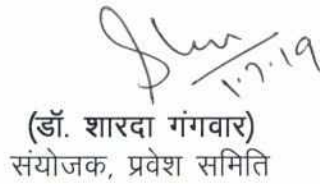 1.7.19
(डॉ. शारदा गंगवार)
संयोजक, प्रवेश समिति